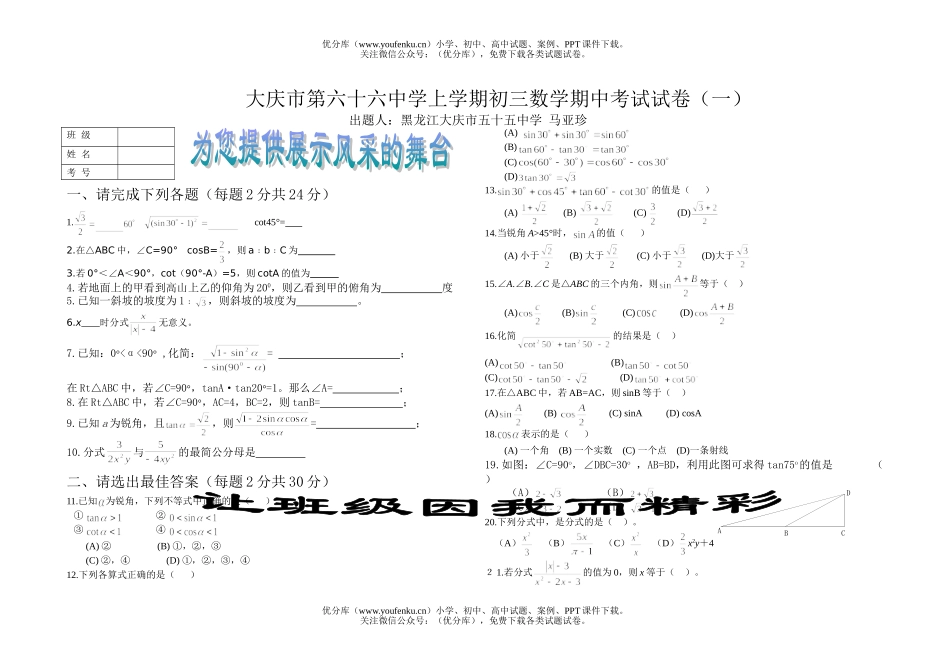 优分库（www.youfenku.cn）小学、初中、高中试题、案例、PPT 课件下载。
关注微信公众号：（优分库），免费下载各类试题试卷。
大庆市第六十六中学上学期初三数学期中考试试卷（一）
出题人：黑龙江大庆市五十五中学 马亚珍
班 级
姓 名
考 号
为您提供展示风采的舞台
一、请完成下列各题（每题 2 分共 24 分）
1. √3/2 = ____60° √(sin30°-1)² = ______ cot45°=___
2.在△ABC 中，∠C=90° cosB=3/2，则 a﹕b﹕C 为______
3.若 0°＜∠A＜90°，cot（90°-A）=5，则 cotA 的值为_____
4.若地面上的甲看到高山上乙的仰角为 20⁰，则乙看到甲的俯角为__________度
5.已知一斜坡的坡度为 1﹕√3，则斜坡的坡度为__________。
6.x___时分式 x/(|x|－4) 无意义。
7.已知：0º<α<90º ,化简： √(1－sin²α)/－sin(90°－α) = ____________________；
在 Rt△ABC 中，若∠C=90º，tanA·tan20º=1。那么∠A=___________；
8.在 Rt△ABC 中，若∠C=90º，AC=4，BC=2，则 tanB=______________；
9.已知 a 为锐角，且 tanα=√2/2，则 √(1－2sinαcosα)/cosα =________________；
10.分式 3/(2x²y) 与 5/(4xy³) 的最简公分母是________
二、请选出最佳答案（每题 2 分共 30 分）
11.已知α为锐角，下列不等式中正确的是（ ）
① tanα>1 ② 0<sinα<1
③ cotα<1 ④ 0<cosα<1
(A) ② (B) ①，②，③
(C) ②，④ (D) ①，②，③，④
12.下列各算式正确的是（ ）
(A) sin30°＋sin30°＝sin60°
(B) tan60°－tan30＝tan30°
(C) cos(60°－30°)＝cos60°－cos30°
(D) 3tan30°＝√3
13.sin30°＋cos45°＋tan60°－cot30°的值是（ ）
(A) (1＋√2)/2 (B) (√3＋√2)/2 (C) 3/2 (D) (√3＋2)/2
14.当锐角 A>45°时，sinA 的值（ ）
(A) 小于√2/2 (B) 大于√2/2 (C) 小于√3/2 (D)大于√3/2
15.∠A.∠B.∠C 是△ABC 的三个内角，则 sin (A＋B)/2 等于（ ）
(A)cos c/2 (B)sin c/2 (C) cosC (D)cos (A＋B)/2
16.化简 √(cot²50°＋tan²50°－2) 的结果是（ ）
(A) cot50°－tan50° (B) tan50°－cot50°
(C) cot50°－tan50°－√2 (D) tan50°＋cot50°
17.在△ABC 中，若 AB=AC，则 sinB 等于（ ）
(A) sin A/2 (B) cos A/2 (C) sinA (D) cosA
18.cosα表示的是（ ）
(A) 一个角 (B) 一个实数 (C) 一个点 (D)一条射线
19.如图；∠C=90º，∠DBC=30º ，AB=BD，利用此图可求得 tan75º的值是 （
）
（A）2－√3 （B）2＋√3
让班级因我而精彩
A B C D
20.下列分式中，是分式的是（ ）。
（A） x²/3 （B） 5x/(π－1) （C） x²/x （D） 2/3 x²y＋4
2 1.若分式 (|x|－3)/(x²－2x－3) 的值为 0，则 x 等于（ ）。
优分库（www.youfenku.cn）小学、初中、高中试题、案例、PPT 课件下载。
关注微信公众号：（优分库），免费下载各类试题试卷。